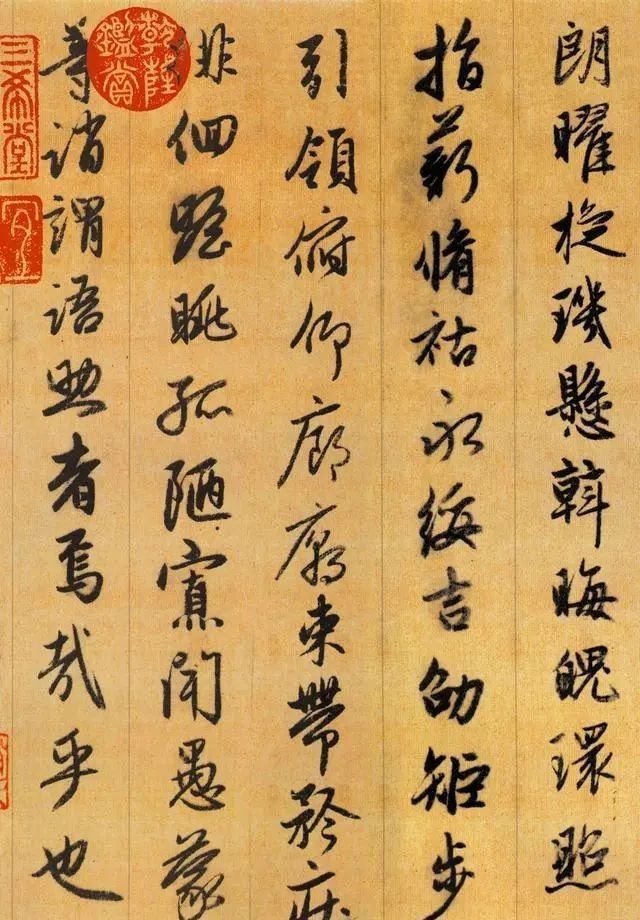 朗曜旋璣懸斡晦魄環照
指薪脩祜永綏吉劭矩步
引領俯仰廊廟束帶矜莊
徘徊瞻眺孤陋寡聞愚蒙
等誚謂語助者焉哉乎也
乾隆鑑賞
三希堂